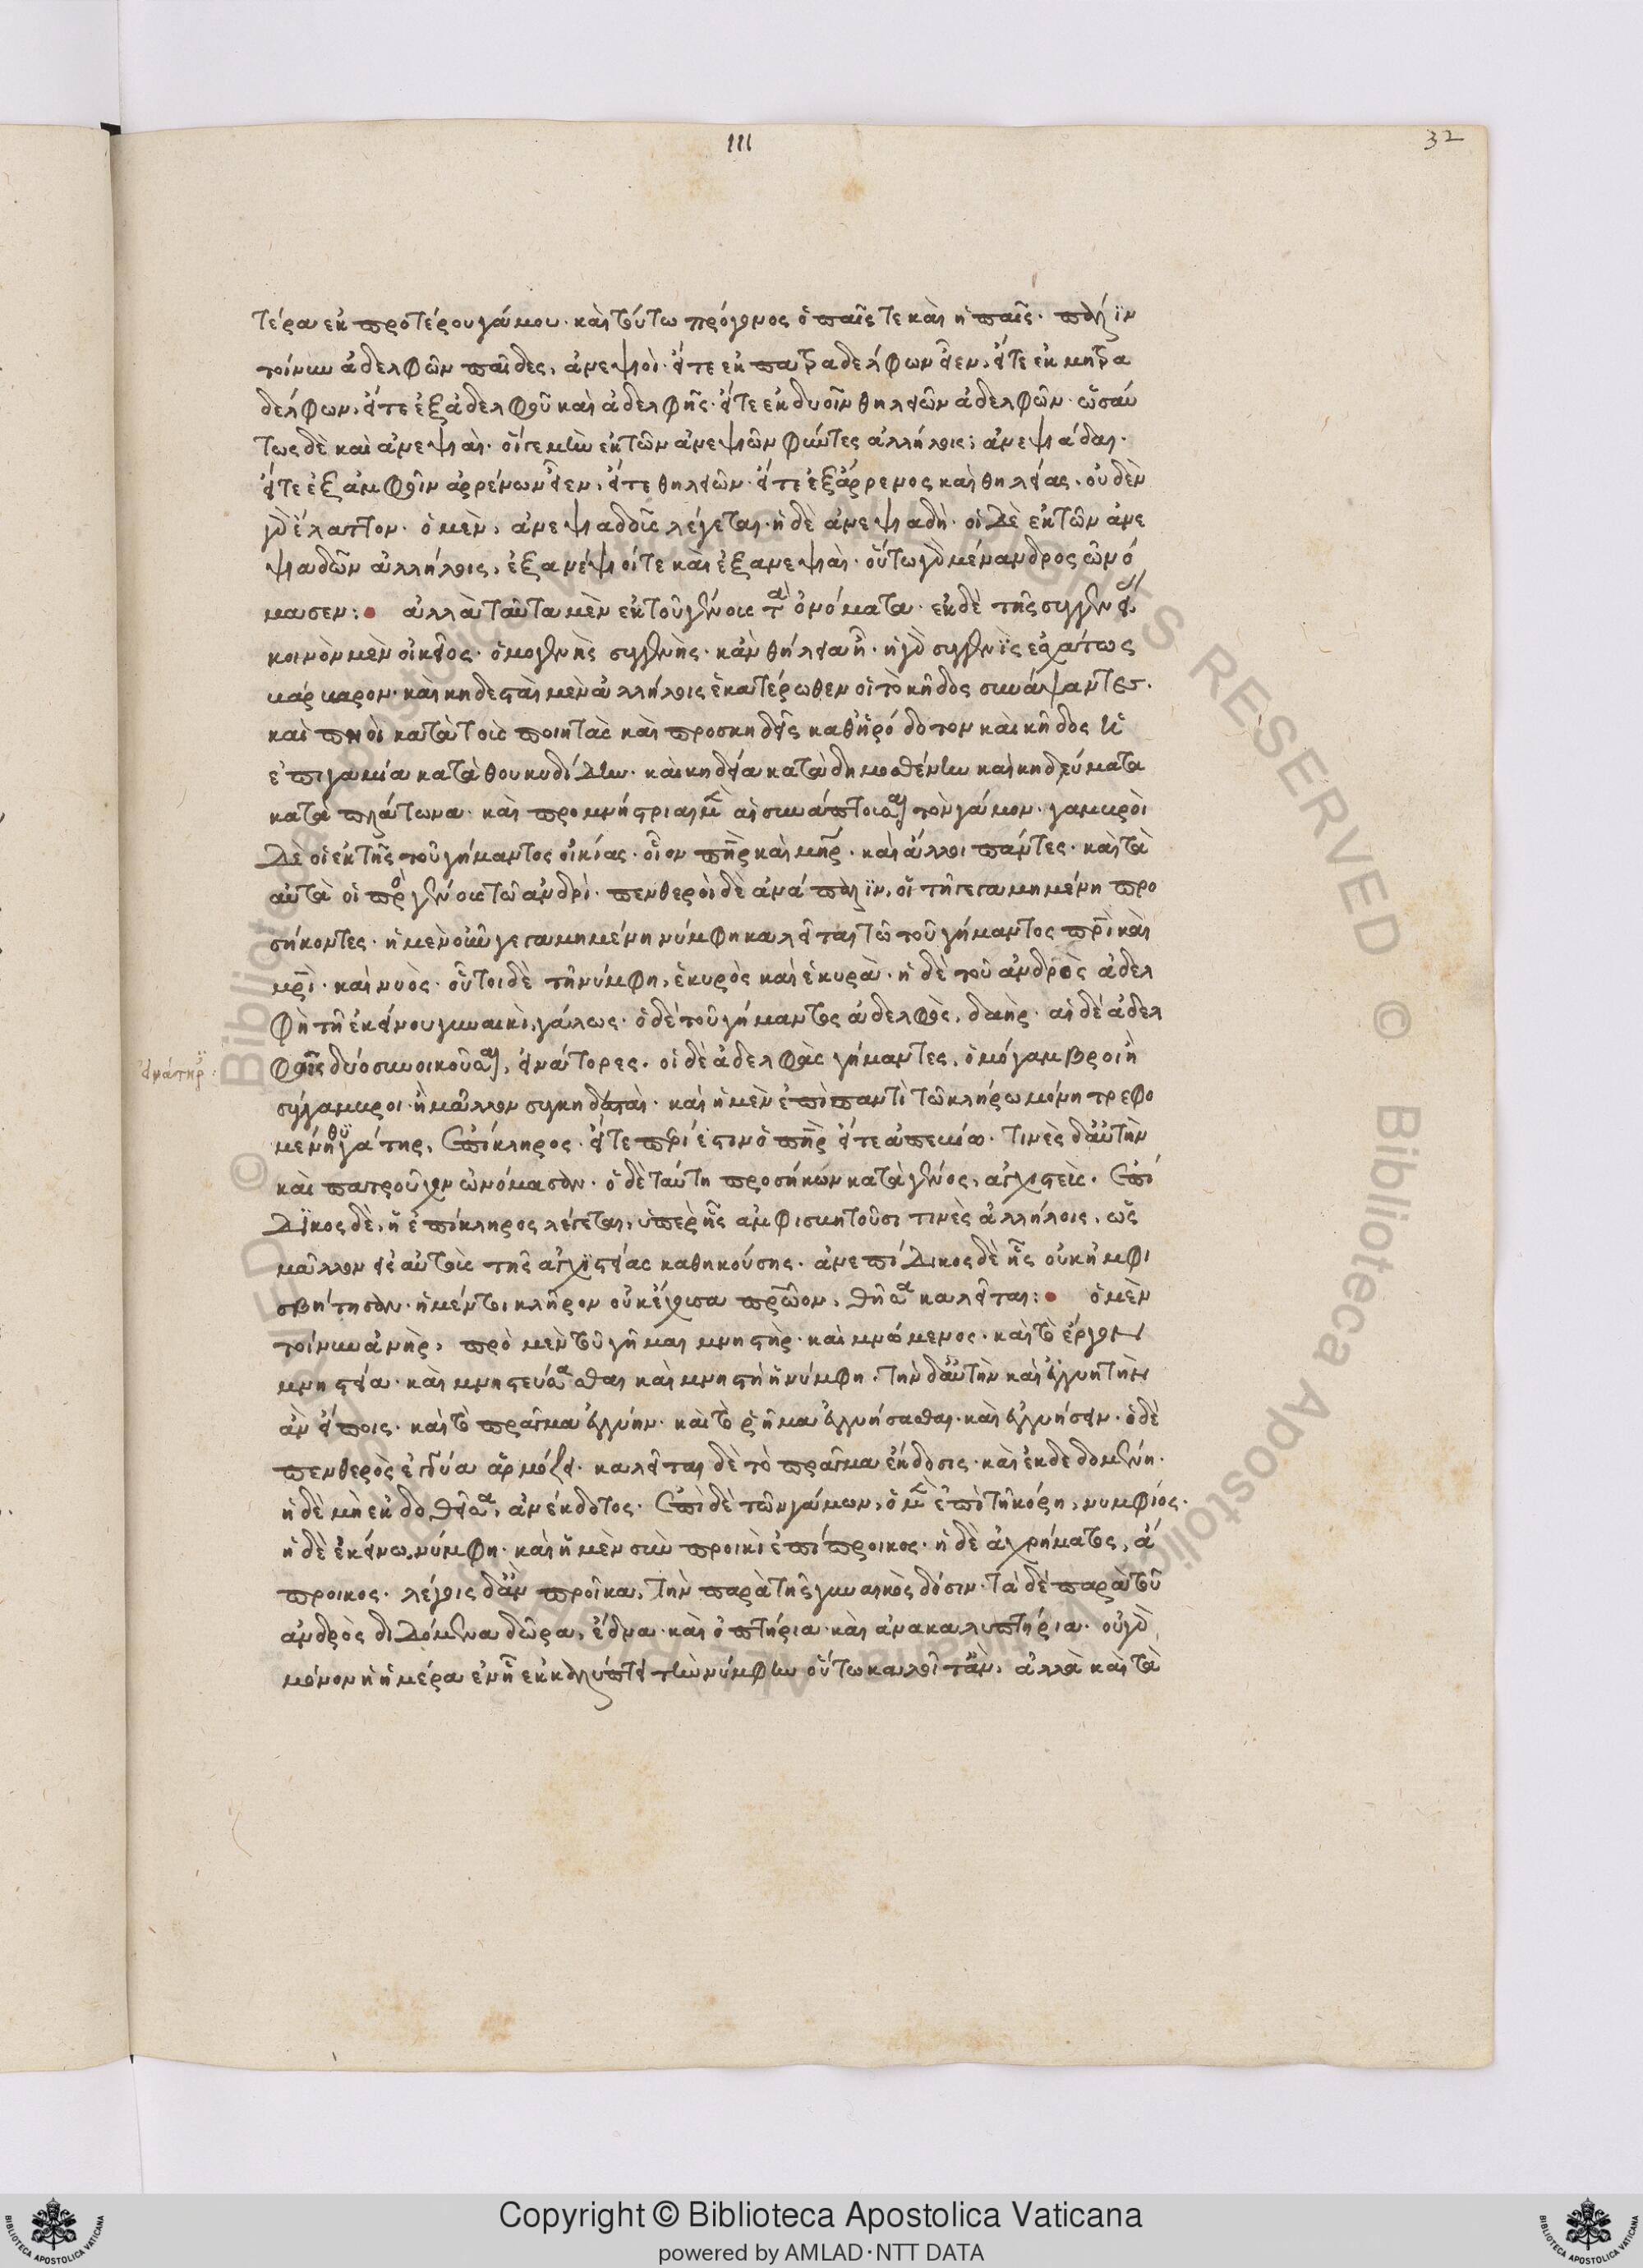 III
32
τέρα ἐκ προτέρου γάμου· καὶ τούτω πρόγονος ὁ παῖς τε καὶ ἡ παῖς· πάλιν
τοίνυν ἀδελφῶν παῖδες, ἀνεψιοὶ· εἴτε ἐκ πατραδέλφων εἶεν, εἴτε ἐκ μητρα
δέλφων, εἴτε ἐξ ἀδελφοῦ καὶ ἀδελφῆς· εἴτε ἐκ δυοῖν θηλειῶν ἀδελφῶν· ὡσαύ
τως δὲ καὶ ἀνεψιαὶ· οἵγε μὴν ἐκ τῶν ἀνεψιῶν φύντες ἀλλήλοις, ἀνεψιάδαι·
εἴτε ἐξ ἀμφοῖν ἀρρένων εἶεν, εἴτε θηλειῶν· εἴτε ἐξ ἄρρενος καὶ θηλείας, οὐδὲν
γὰρ ἔλαττον· ὁ μὲν, ἀνεψιαδοῦς λέγεται· ἡ δὲ ἀνεψιαδή· οἱ δὲ ἐκ τῶν ἀνε
ψιαδῶν ἀλλήλοις, ἐξανέψιοί τε καὶ ἐξανεψιαὶ· οὕτω γὰρ μένανδρος ὠνό
μασεν: ἀλλὰ ταῦτα μὲν ἐκ τοῦ γένους τὰ ὀνόματα· ἐκ δὲ τῆς συγγενεί
κοινὸν μὲν οἰκεῖος· ὁμογενὴς συγγενὴς· κἂν θήλεια ᾖ· ἡ γὰρ συγγενὶς ἐσχάτως
βάρβαρον· καὶ κηδεσταὶ μὲν ἀλλήλοις ἑκατέρωθεν οἱ τὸ κῆδος συνάψαντες·
καὶ πηοὶ κατὰ τοὺς ποιητὰς καὶ προσκηδεῖς καθ' ἡρόδοτον καὶ κῆδος καὶ
ἐπιγαμία κατὰ θουκυδίδην· καὶ κηδεία κατὰ δημοσθένην καὶ κηδεύματα
κατὰ πλάτωνα· καὶ προμνήστριαι μὲν αἱ συνάπτουσαι τὸν γάμον· γαμβροὶ
δὲ οἱ ἐκ τῆς τοῦ γήμαντος οἰκίας· οἷον πηρ καὶ μηρ· καὶ ἄλλοι πάντες· κατὰ τὰ
αὐτὰ οἱ πρὸ γένους τῶ ἀνδρί· πενθεροὶ δὲ ἀνάπαλιν, οἵ τῆ γεγαμημένη προ
σήκοντες· ἡ μὲν οὖν γεγαμημένη νύμφη καλεῖται τῶ τοῦ γήμαντος πρὶ καὶ
μρὶ· καὶ νυὸς· οὗτοι δὲ τῆ νύμφη, ἑκυρὸς καὶ ἑκυρὰ· ἡ δὲ τοῦ ἀνδρὸς ἀδελ
φὴ τῆ ἐκείνου γυναικὶ, γάλως· ὁ δὲ τοῦ γήμαντος ἀδελφὸς, δαὴρ· αἱ δὲ ἀδελ
φοῖς δυὸ συνοικοῦσαι, εἰνάτορες· οἱ δὲ ἀδελφὰς γήμαντες, ὁμόγαμβροι ἢ
σύγαμβροι· ἢ μᾶλλον συγκηδεσταὶ· καὶ ἡ μὲν ἐπὶ παντὶ τῶ κλήρω μόνη τρεφο
μένη θυγάτηρ, ἐπίκληρος· εἴτε περίεστιν ὁ πηρ εἴτε ἀπείη· τινὲς δ' αὐτὴν
καὶ πατροῦχον ὠνόμασαν· ὁ δὲ ταύτη προσήκων κατὰ γένος, ἀγχιστεὺς· ἐπί
δικος δὲ, ἡ ἐπίκληρος λέγεται, ὑπὲρ ἧς ἀμφισβητοῦσί τινὲς ἀλλήλοις, ὡς
μᾶλλον εἰς αὐτοὺς τῆς ἀγχιστείας καθηκούσης· ἀνεπίδικος δὲ ἧς οὐκ ἠμφι
σβήτησαν· ἡ μέντοι κλῆρον οὐκ ἔχουσα πρῶον, θῆσσα καλεῖται: ὁ μὲν
τοίνυν ἀνὴρ, πρὸ μὲν τοῦ γῆμαι μνηστὴρ· καὶ μνώμενος· καὶ τὸ ἔργον
μνηστεία· καὶ μνηστεύσασθαι καὶ μνηστὴ ἡ νύμφη. τὴν δ' αὐτὴν καὶ ἐγγυητὴν
ἂν εἴποις· καὶ τὸ πρᾶγμα ἐγγύην· καὶ τὸ ῥῆμα ἐγγυήσασθαι· καὶ ἐγγυήσειν· ὁ δὲ
πενθερὸς ἐγγυᾶ ἁρμόζει· καλεῖται δὲ τὸ πρᾶγμα ἔκδοσις· καὶ ἐκδεδομένη·
ἡ δὲ μὴ ἐκδοθεῖσα, ἀνέκδοτος· ἐπὶ δὲ τῶν γάμων, ὁ μὲν ἐπὶ τῆ κόρη, νυμφίος·
ἡ δὲ ἐκείνω νύμφη· καὶ ἡ μὲν σὺν προικὶ ἐπίπροικος· ἡ δὲ ἀχρήματος, ἄ
προικος· λέγοις δ' ἂν προῖκα, τὴν παρὰ τῆς γυναικὸς δόσιν· τὰ δὲ παρὰ τοῦ
ἀνδρὸς διδόμενα δῶρα, ἕδνα· καὶ ὀπτήρια· καὶ ἀνακαλυπτήρια· οὐ γὰρ
μόνον ἡ ἡμέρα ἐν ἧ ἐκκαλύπτει τὴν νύμφην οὕτω καλοῖτ' ἂν, ἀλλὰ καὶ τὰ
εἰνάτηρ:
Copyright © Biblioteca Apostolica Vaticana
powered by AMLAD·NTT DATA